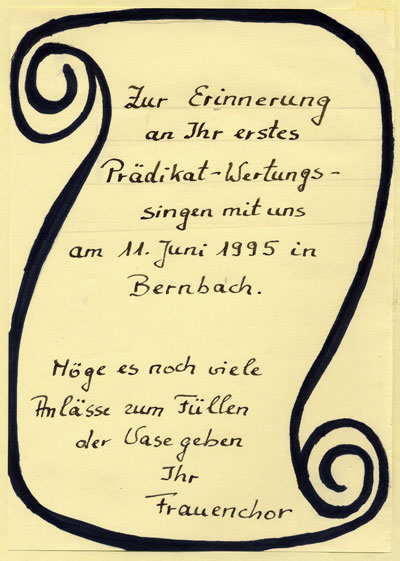 Zur Erinnerung
an Ihr erstes
Prädikat-Wertungs-
singen mit uns
am 11. Juni 1995 in
Bernbach.
Möge es noch viele
Anlässe zum Füllen
der Vase geben
Ihr
Frauenchor